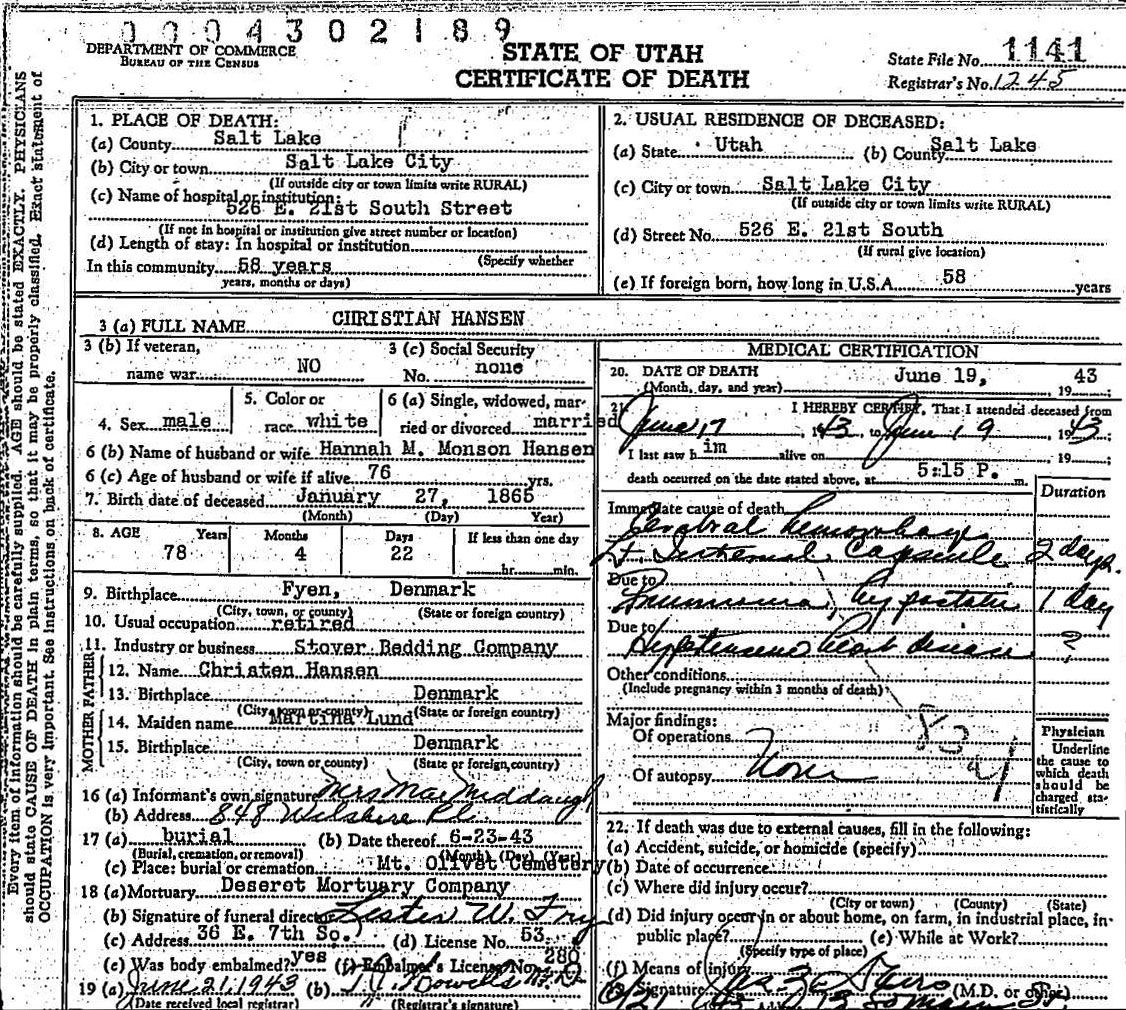 0004302189
DEPARTMENT OF COMMERCE
BUREAU OF THE CENSUS
STATE OF UTAH
CERTIFICATE OF DEATH
State File No. 1141
Registrar's No. 1245
Every item of information should be carefully supplied. AGE should be stated EXACTLY. PHYSICIANS
should state CAUSE OF DEATH in plain terms, so that it may be properly classified. Exact statement of
OCCUPATION is very important. See instructions on back of certificate.
1. PLACE OF DEATH:
(a) County Salt Lake
(b) City or town Salt Lake City
(If outside city or town limits write RURAL)
(c) Name of hospital or institution:
526 E. 21st South Street
(If not in hospital or institution give street number or location)
(d) Length of stay: In hospital or institution
(Specify whether
In this community 58 years
years, months or days)
2. USUAL RESIDENCE OF DECEASED:
(a) State Utah (b) County Salt Lake
(c) City or town Salt Lake City
(If outside city or town limits write RURAL)
(d) Street No. 526 E. 21st South
(If rural give location)
(e) If foreign born, how long in U.S.A. 58 years
3 (a) FULL NAME CHRISTIAN HANSEN
3 (b) If veteran,
name war NO
3 (c) Social Security
No. none
4. Sex male
5. Color or
race white
6 (a) Single, widowed, mar-
ried or divorced married
6 (b) Name of husband or wife Hannah M. Monson Hansen
6 (c) Age of husband or wife if alive 76 yrs.
7. Birth date of deceased January 27, 1865
(Month) (Day) Year)
8. AGE Years Months Days If less than one day
78 4 22 hr. min.
9. Birthplace Fyen, Denmark
(City, town, or county) (State or foreign country)
10. Usual occupation retired
11. Industry or business Stover Bedding Company
FATHER
12. Name Christen Hansen
13. Birthplace Denmark
(City, town or county) (State or foreign country)
MOTHER
14. Maiden name Martina Lund
15. Birthplace Denmark
(City, town or county) (State or foreign country)
16 (a) Informant's own signature Mrs Mae Middaugh
(b) Address 848 Wilshire Pl.
17 (a) burial (b) Date thereof 6-23-43
(Burial, cremation, or removal) (Month) (Day) (Year)
(c) Place: burial or cremation Mt. Olivet Cemetery
18 (a) Mortuary Deseret Mortuary Company
(b) Signature of funeral director Lester W. Fry
(c) Address 36 E. 7th So. (d) License No. 53
(e) Was body embalmed? yes (f) Embalmer's License No. 280
19 (a) June 21, 1943 (b) M.D.
(Date received local registrar) (Registrar's signature)
MEDICAL CERTIFICATION
20. DATE OF DEATH June 19, 1943
(Month, day, and year)
21. I HEREBY CERTIFY, That I attended deceased from
June 17, 1943, to June 19, 1943;
I last saw him alive on 19 ;
death occurred on the date stated above, at 5:15 P. m.
Duration
Immediate cause of death
Cerebral hemorrhage
Lt. Internal Capsule 2 days.
Due to
Pneumonia, hypostatic 1 day
Due to
Hypertensive heart disease ?
Other conditions
(Include pregnancy within 3 months of death)
Major findings:
Of operations
Of autopsy None
Physician
Underline
the cause to
which death
should be
charged sta-
tistically
22. If death was due to external causes, fill in the following:
(a) Accident, suicide, or homicide (specify)
(b) Date of occurrence
(c) Where did injury occur?
(City or town) (County) (State)
(d) Did injury occur in or about home, on farm, in industrial place, in-
public place? (e) While at Work?
(Specify type of place)
(f) Means of injury
Signature (M.D. or other)